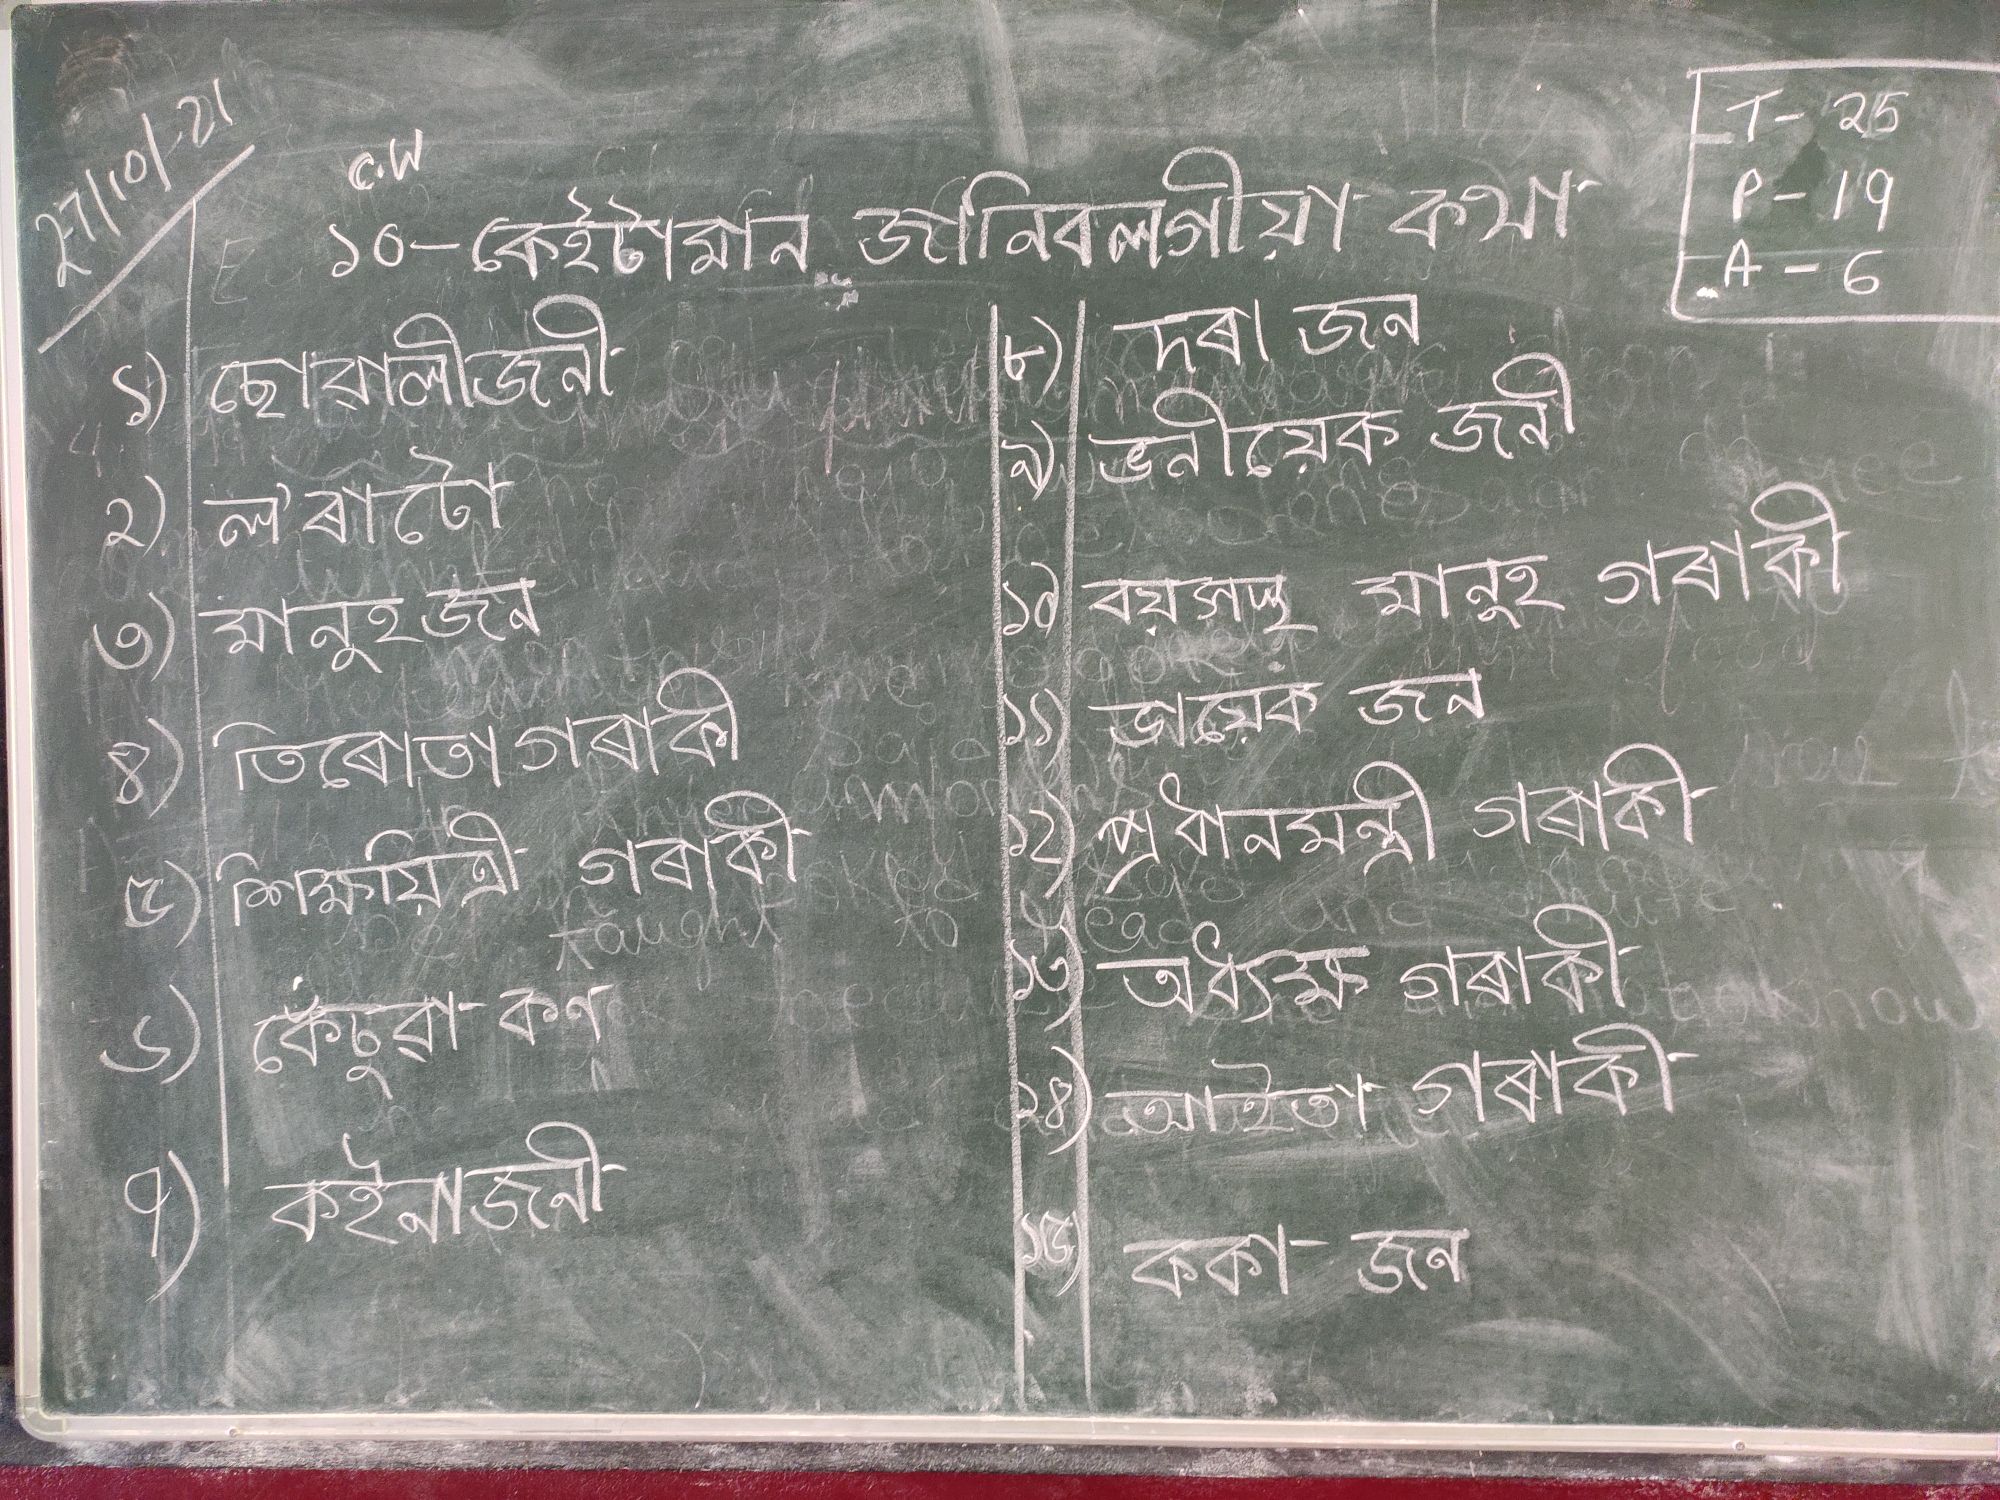 27/10/21
C.W
T - 25
P - 19
A - 6
১০ - কেইটামান জানিবলগীয়া কথা
১) ছোৱালীজনী
২) ল'ৰাটো
৩) মানুহজন
৪) তিৰোতাগৰাকী
৫) শিক্ষয়িত্ৰী গৰাকী
৬) কেঁচুৱা কণ
৭) কইনাজনী
৮) দৰা জন
৯) ভনীয়েক জনী
১০) বয়সস্থ মানুহ গৰাকী
১১) ভায়েক জন
১২) প্ৰধানমন্ত্ৰী গৰাকী
১৩) অধ্যক্ষ গৰাকী
১৪) আইতা গৰাকী
১৫) ককা - জন